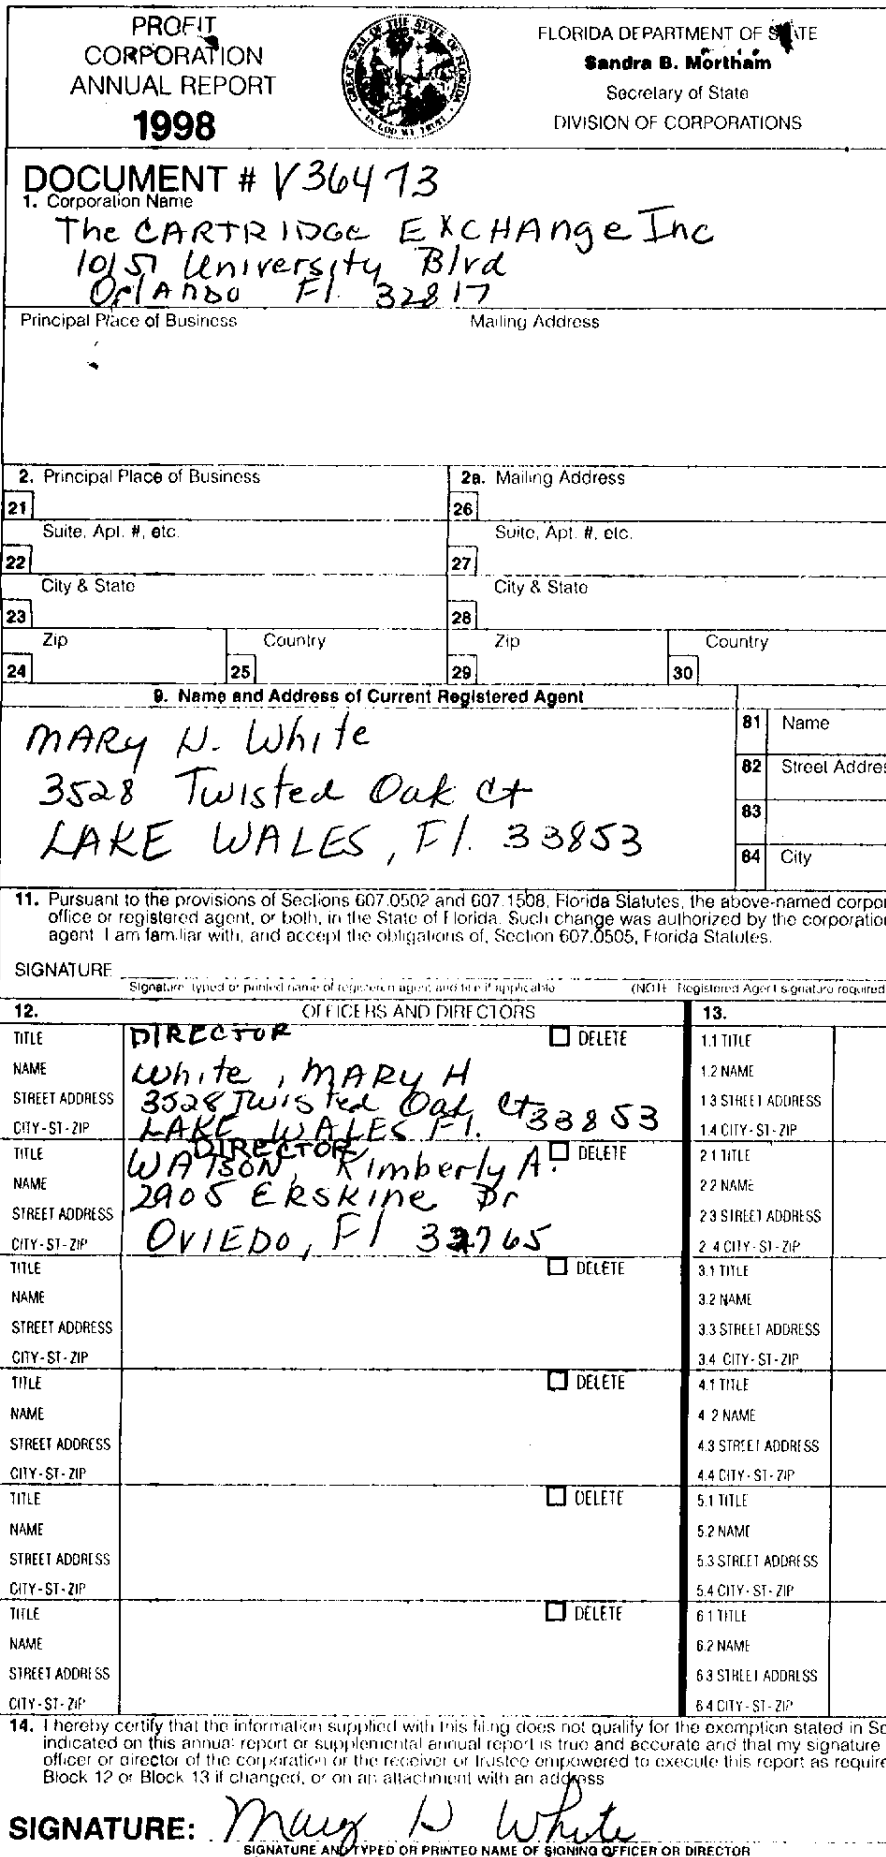 PROFIT
CORPORATION
ANNUAL REPORT
1998
GREAT SEAL OF THE STATE OF FLORIDA
IN GOD WE TRUST
FLORIDA DEPARTMENT OF STATE
Sandra B. Mortham
Secretary of State
DIVISION OF CORPORATIONS
DOCUMENT # V36473
1. Corporation Name
The CARTRIDGE EXCHAnge Inc
10151 University Blvd
OrlANDO Fl. 32817
Principal Place of Business Mailing Address
2. Principal Place of Business 2a. Mailing Address
21 26
Suite, Apt. #, etc. Suite, Apt. #, etc.
22 27
City & State City & State
23 28
Zip Country Zip Country
24 25 29 30
9. Name and Address of Current Registered Agent
MARy H. White
3528 Twisted Oak Ct
LAKE WALES, Fl. 33853
81 Name
82 Street Addres
83
84 City
11. Pursuant to the provisions of Sections 607.0502 and 607.1508, Florida Statutes, the above-named corpor
office or registered agent, or both, in the State of Florida. Such change was authorized by the corporation
agent. I am familiar with, and accept the obligations of, Section 607.0505, Florida Statutes.
SIGNATURE
Signature, typed or printed name of registered agent and title if applicable (NOTE: Registered Agent signature required
12. OFFICERS AND DIRECTORS 13.
TITLE DIRECTOR DELETE 1.1 TITLE
NAME White, MARy H 1.2 NAME
STREET ADDRESS 3528 Twisted Oak Ct 1.3 STREET ADDRESS
CITY-ST-ZIP LAKE WALES Fl. 33853 1.4 CITY-ST-ZIP
TITLE DIRECTOR DELETE 2.1 TITLE
NAME WATSON, Kimberly A. 2.2 NAME
STREET ADDRESS 2905 ERSKine Dr 2.3 STREET ADDRESS
CITY-ST-ZIP OVIEDO, Fl 32765 2.4 CITY-ST-ZIP
TITLE DELETE 3.1 TITLE
NAME 3.2 NAME
STREET ADDRESS 3.3 STREET ADDRESS
CITY-ST-ZIP 3.4 CITY-ST-ZIP
TITLE DELETE 4.1 TITLE
NAME 4.2 NAME
STREET ADDRESS 4.3 STREET ADDRESS
CITY-ST-ZIP 4.4 CITY-ST-ZIP
TITLE DELETE 5.1 TITLE
NAME 5.2 NAME
STREET ADDRESS 5.3 STREET ADDRESS
CITY-ST-ZIP 5.4 CITY-ST-ZIP
TITLE DELETE 6.1 TITLE
NAME 6.2 NAME
STREET ADDRESS 6.3 STREET ADDRESS
CITY-ST-ZIP 6.4 CITY-ST-ZIP
14. I hereby certify that the information supplied with this filing does not qualify for the exemption stated in Se
indicated on this annual report or supplemental annual report is true and accurate and that my signature
officer or director of the corporation or the receiver or trustee empowered to execute this report as require
Block 12 or Block 13 if changed, or on an attachment with an address
SIGNATURE: Mary H White
SIGNATURE AND TYPED OR PRINTED NAME OF SIGNING OFFICER OR DIRECTOR